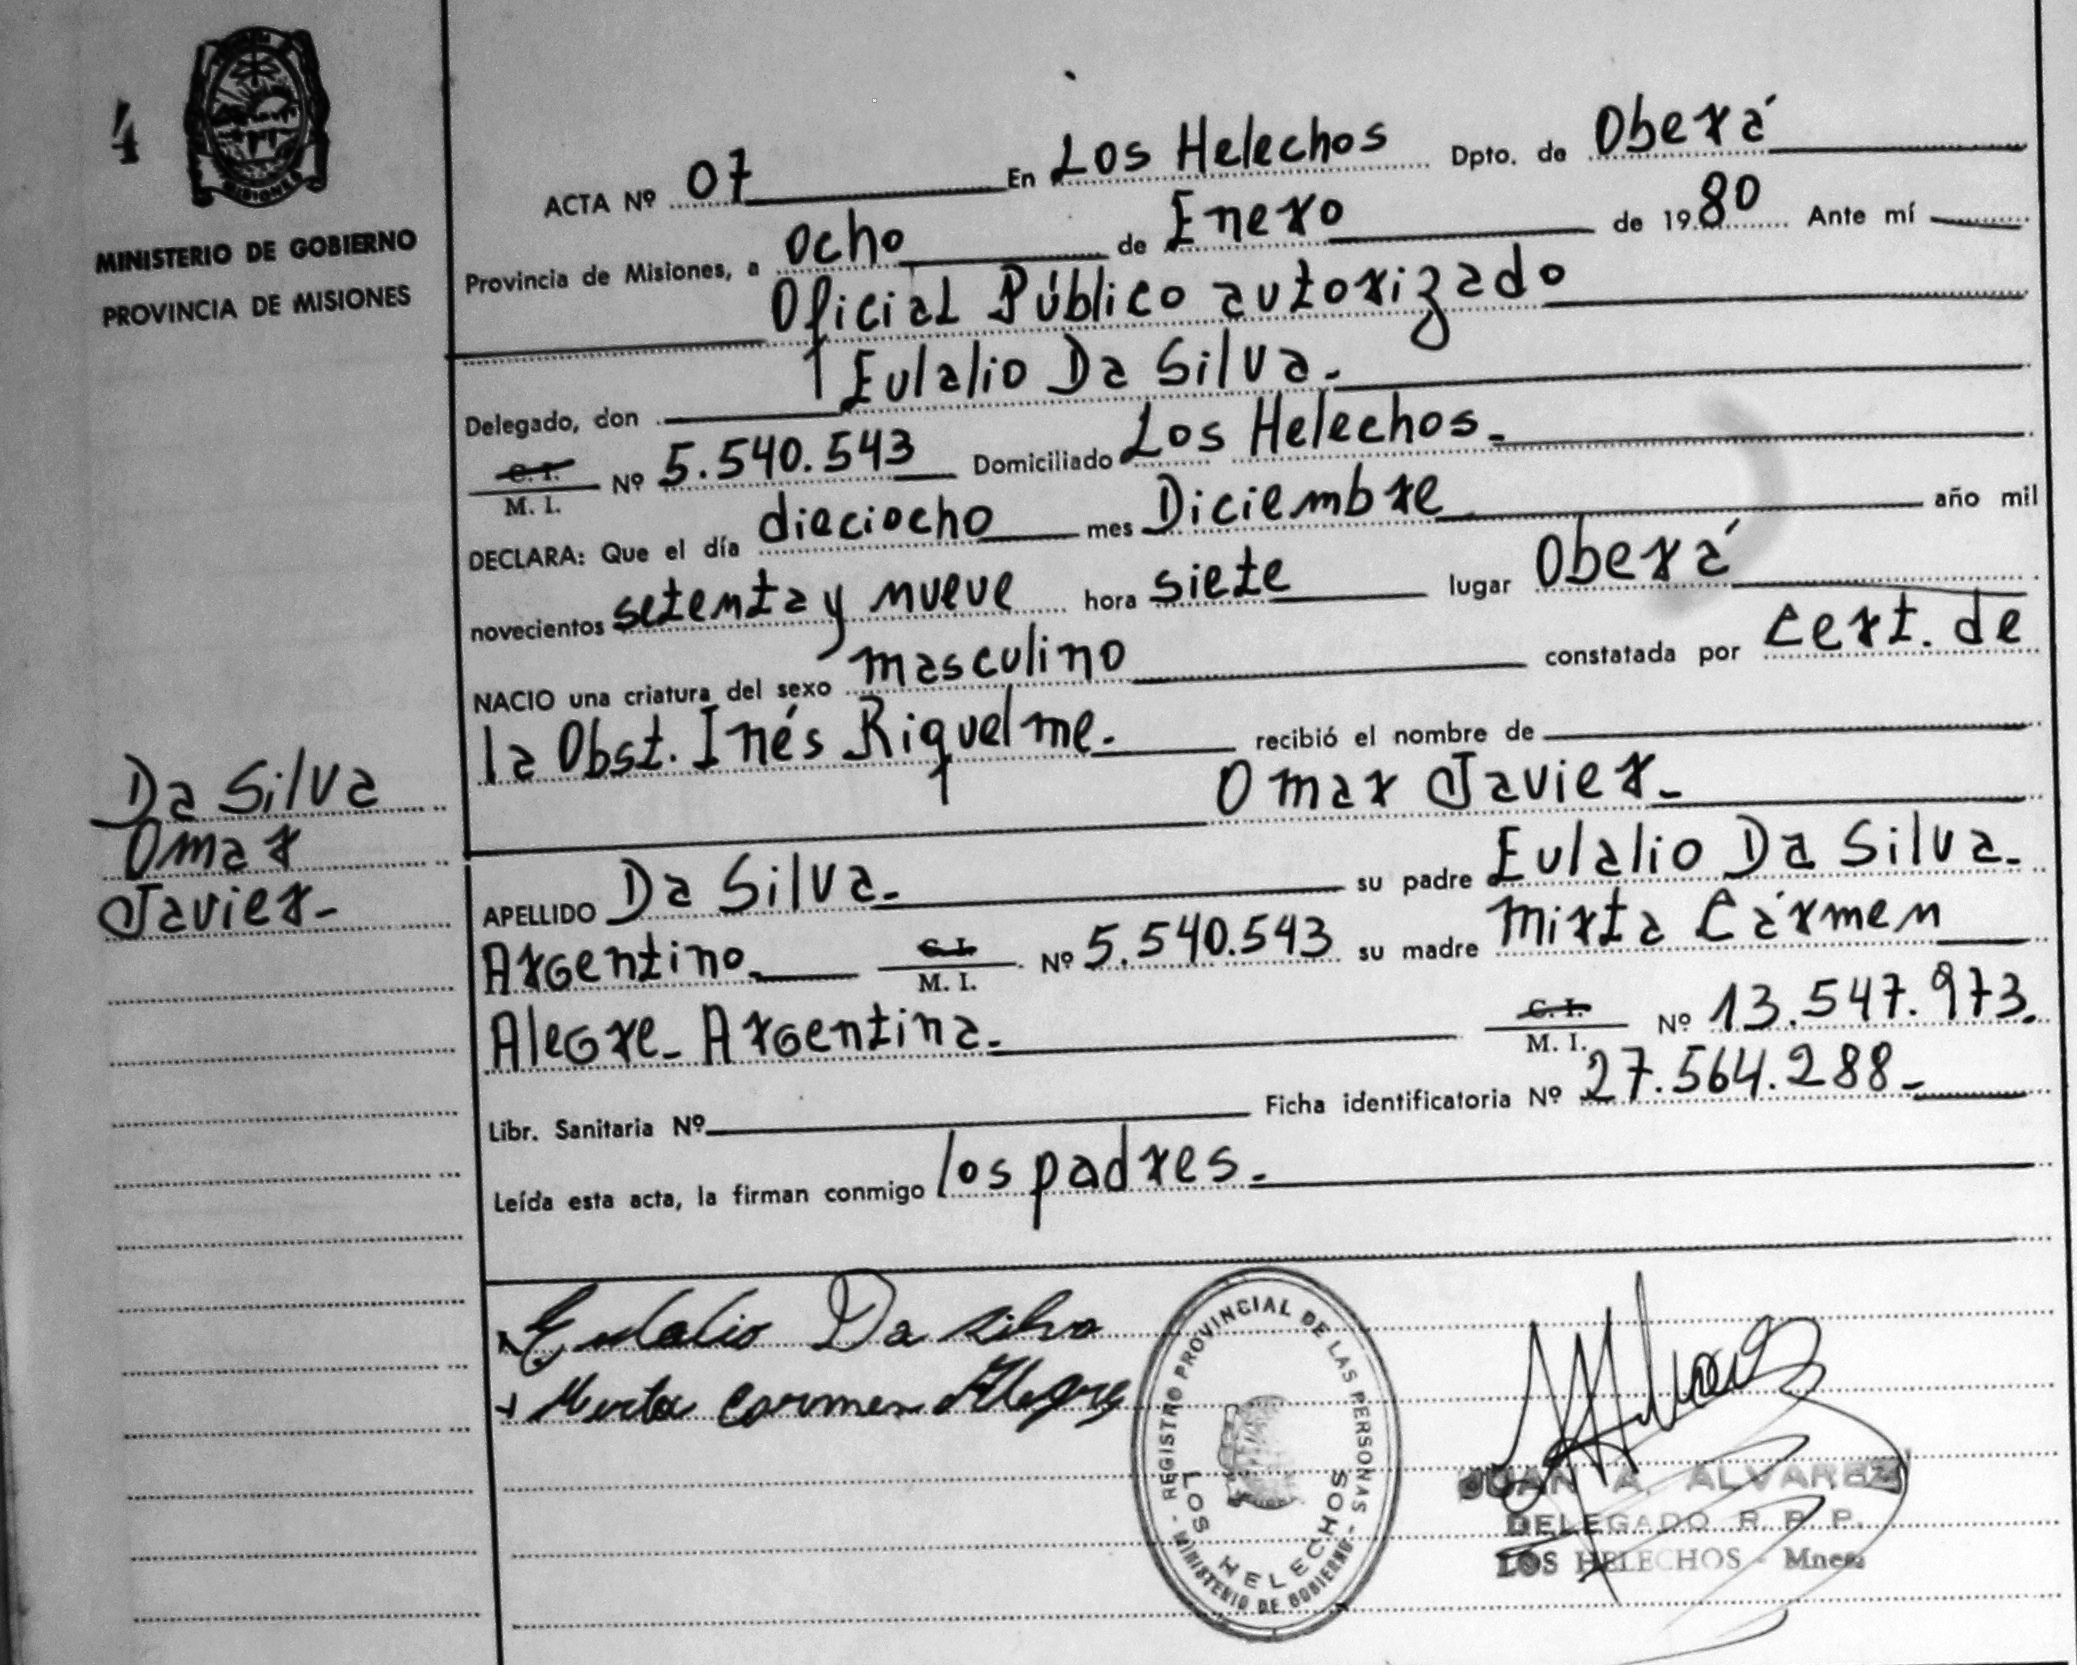 4
MINISTERIO DE GOBIERNO
PROVINCIA DE MISIONES
ACTA Nº 07 En Los Helechos Dpto. de Oberá
Provincia de Misiones, a ocho de Enero de 1980 Ante mí
Oficial Público autorizado
Delegado, don Eulalio Da Silva.
C. I.
M. I. Nº 5.540.543 Domiciliado Los Helechos.
DECLARA: Que el día dieciocho mes Diciembre año mil
novecientos setenta y nueve hora siete lugar Oberá
NACIO una criatura del sexo masculino constatada por Cert. de
la Obst. Inés Riquelme. recibió el nombre de
Omar Javier.
Da Silva
Omar
Javier-
APELLIDO Da Silva. su padre Eulalio Da Silva.
Argentino. C. I. M. I. Nº 5.540.543 su madre Mirta Cármen
Alegre- Argentina. C. I. M. I. Nº 13.547.973.
Libr. Sanitaria Nº Ficha identificatoria Nº 27.564.288-
Leída esta acta, la firman conmigo los padres.
Eulalio Da Silva
Mirta Carmen Alegre
REGISTRO PROVINCIAL DE LAS PERSONAS
- MINISTERIO DE GOBIERNO -
LOS HELECHOS
JUAN A. ALVAREZ
DELEGADO R. P. P.
LOS HELECHOS - Mnes.